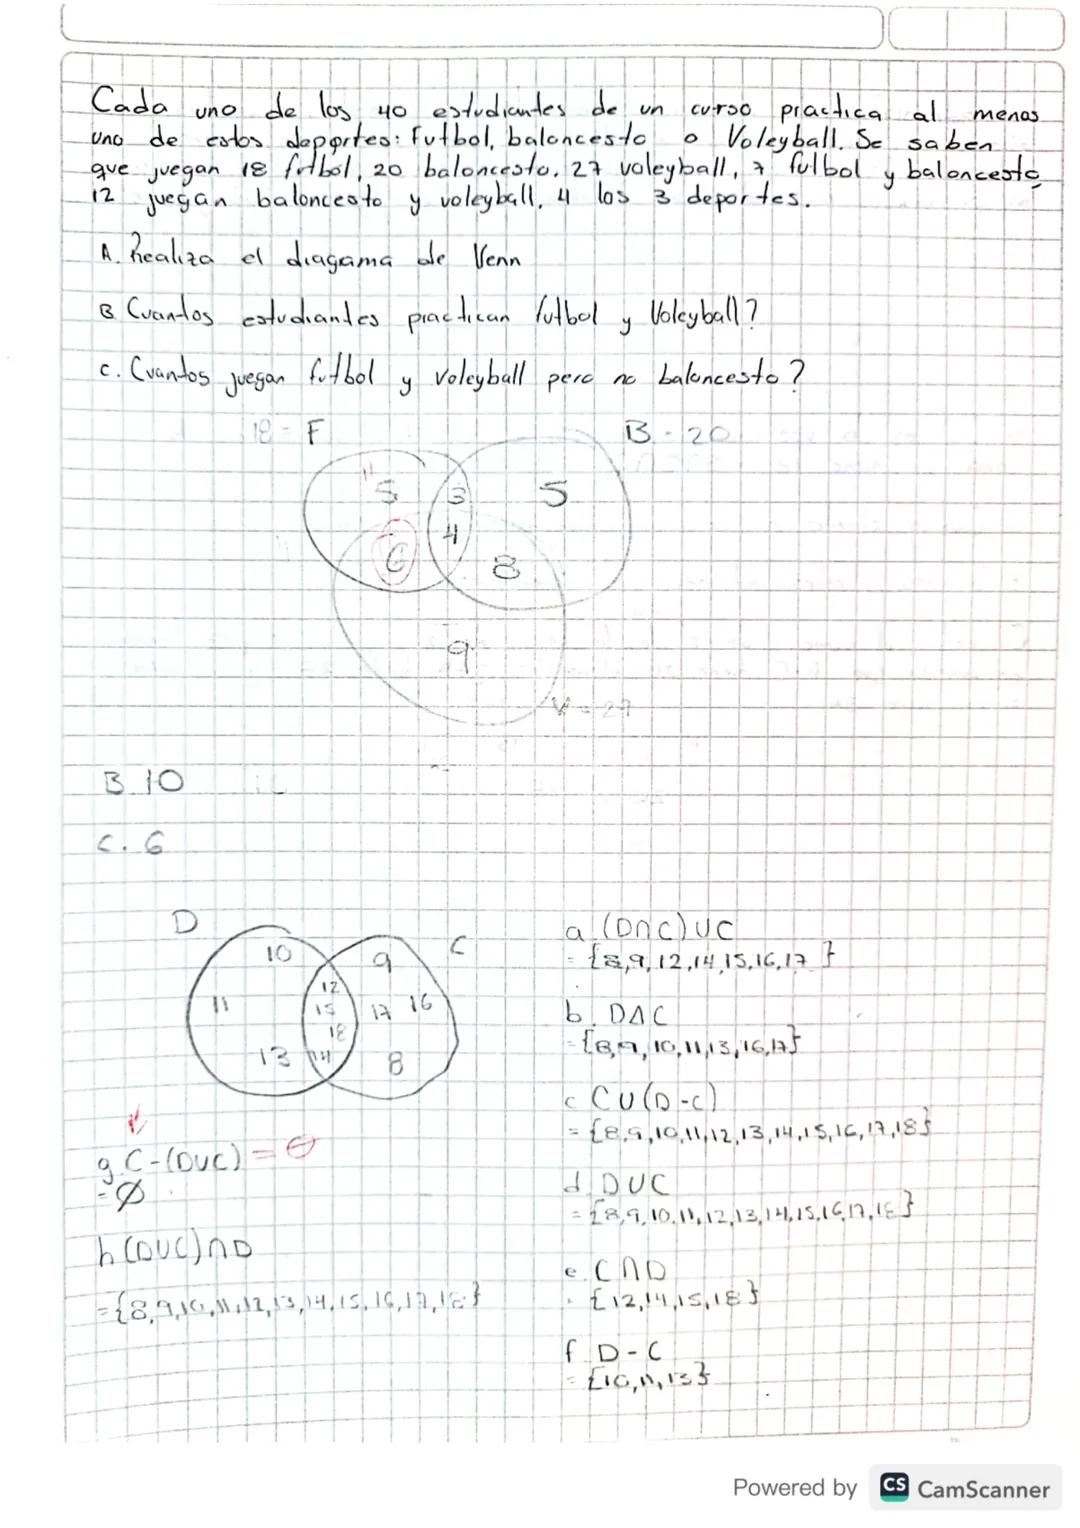 Cada uno de los 40 estudiantes de un curso practica al menos
uno de estos deportes: Futbol, baloncesto o Voleyball. Se saben
que juegan 18 futbol, 20 baloncesto, 27 voleyball, 7 futbol y baloncesto
12 juegan baloncesto y voleyball, 4 los 3 deportes.
A. Realiza el diagama de Venn
B Cuantos estudiantes practican futbol y Voleyball?
C. Cuantos juegan futbol y Voleyball pero no baloncesto?
18 - F
B - 20
5 3 5
4
6 8
9
V = 27
B. 10
C. 6
D
C
10 9
12
11 15 17 16
18
13 14 8
a. (D∩C)∪C
= {8,9,12,14,15,16,17}
b. D∆C
= {8,9,10,11,13,16,17}
c C∪(D-C)
= {8,9,10,11,12,13,14,15,16,17,18}
d. D∪C
= {8,9,10,11,12,13,14,15,16,17,18}
e. C∩D
= {12,14,15,18}
f D-C
= {10,11,13}
g C-(D∪C) = ∅
= ∅
h (D∪C)∩D
= {8,9,10,11,12,13,14,15,16,17,18}
Powered by CS CamScanner